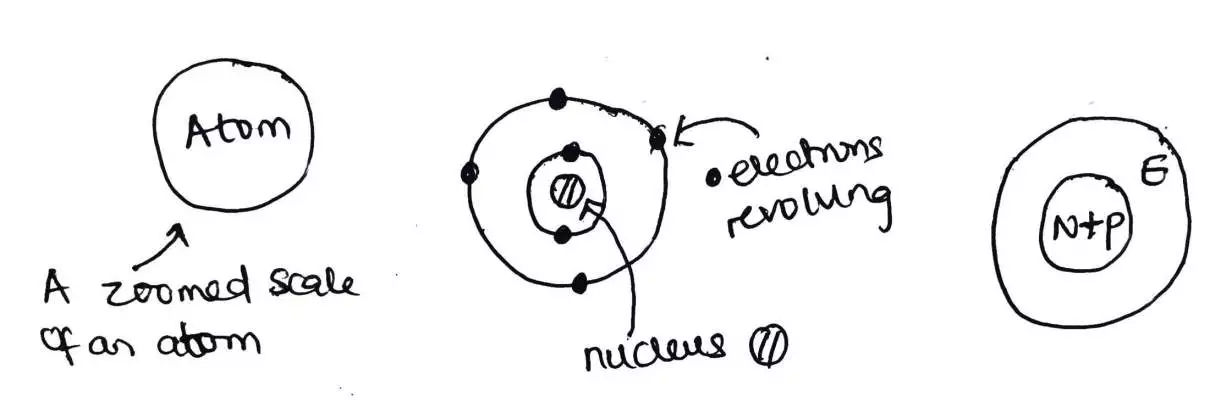 Atom
A zoomed scale
of an atom
electrons
revolving
nucleus
N+P
E